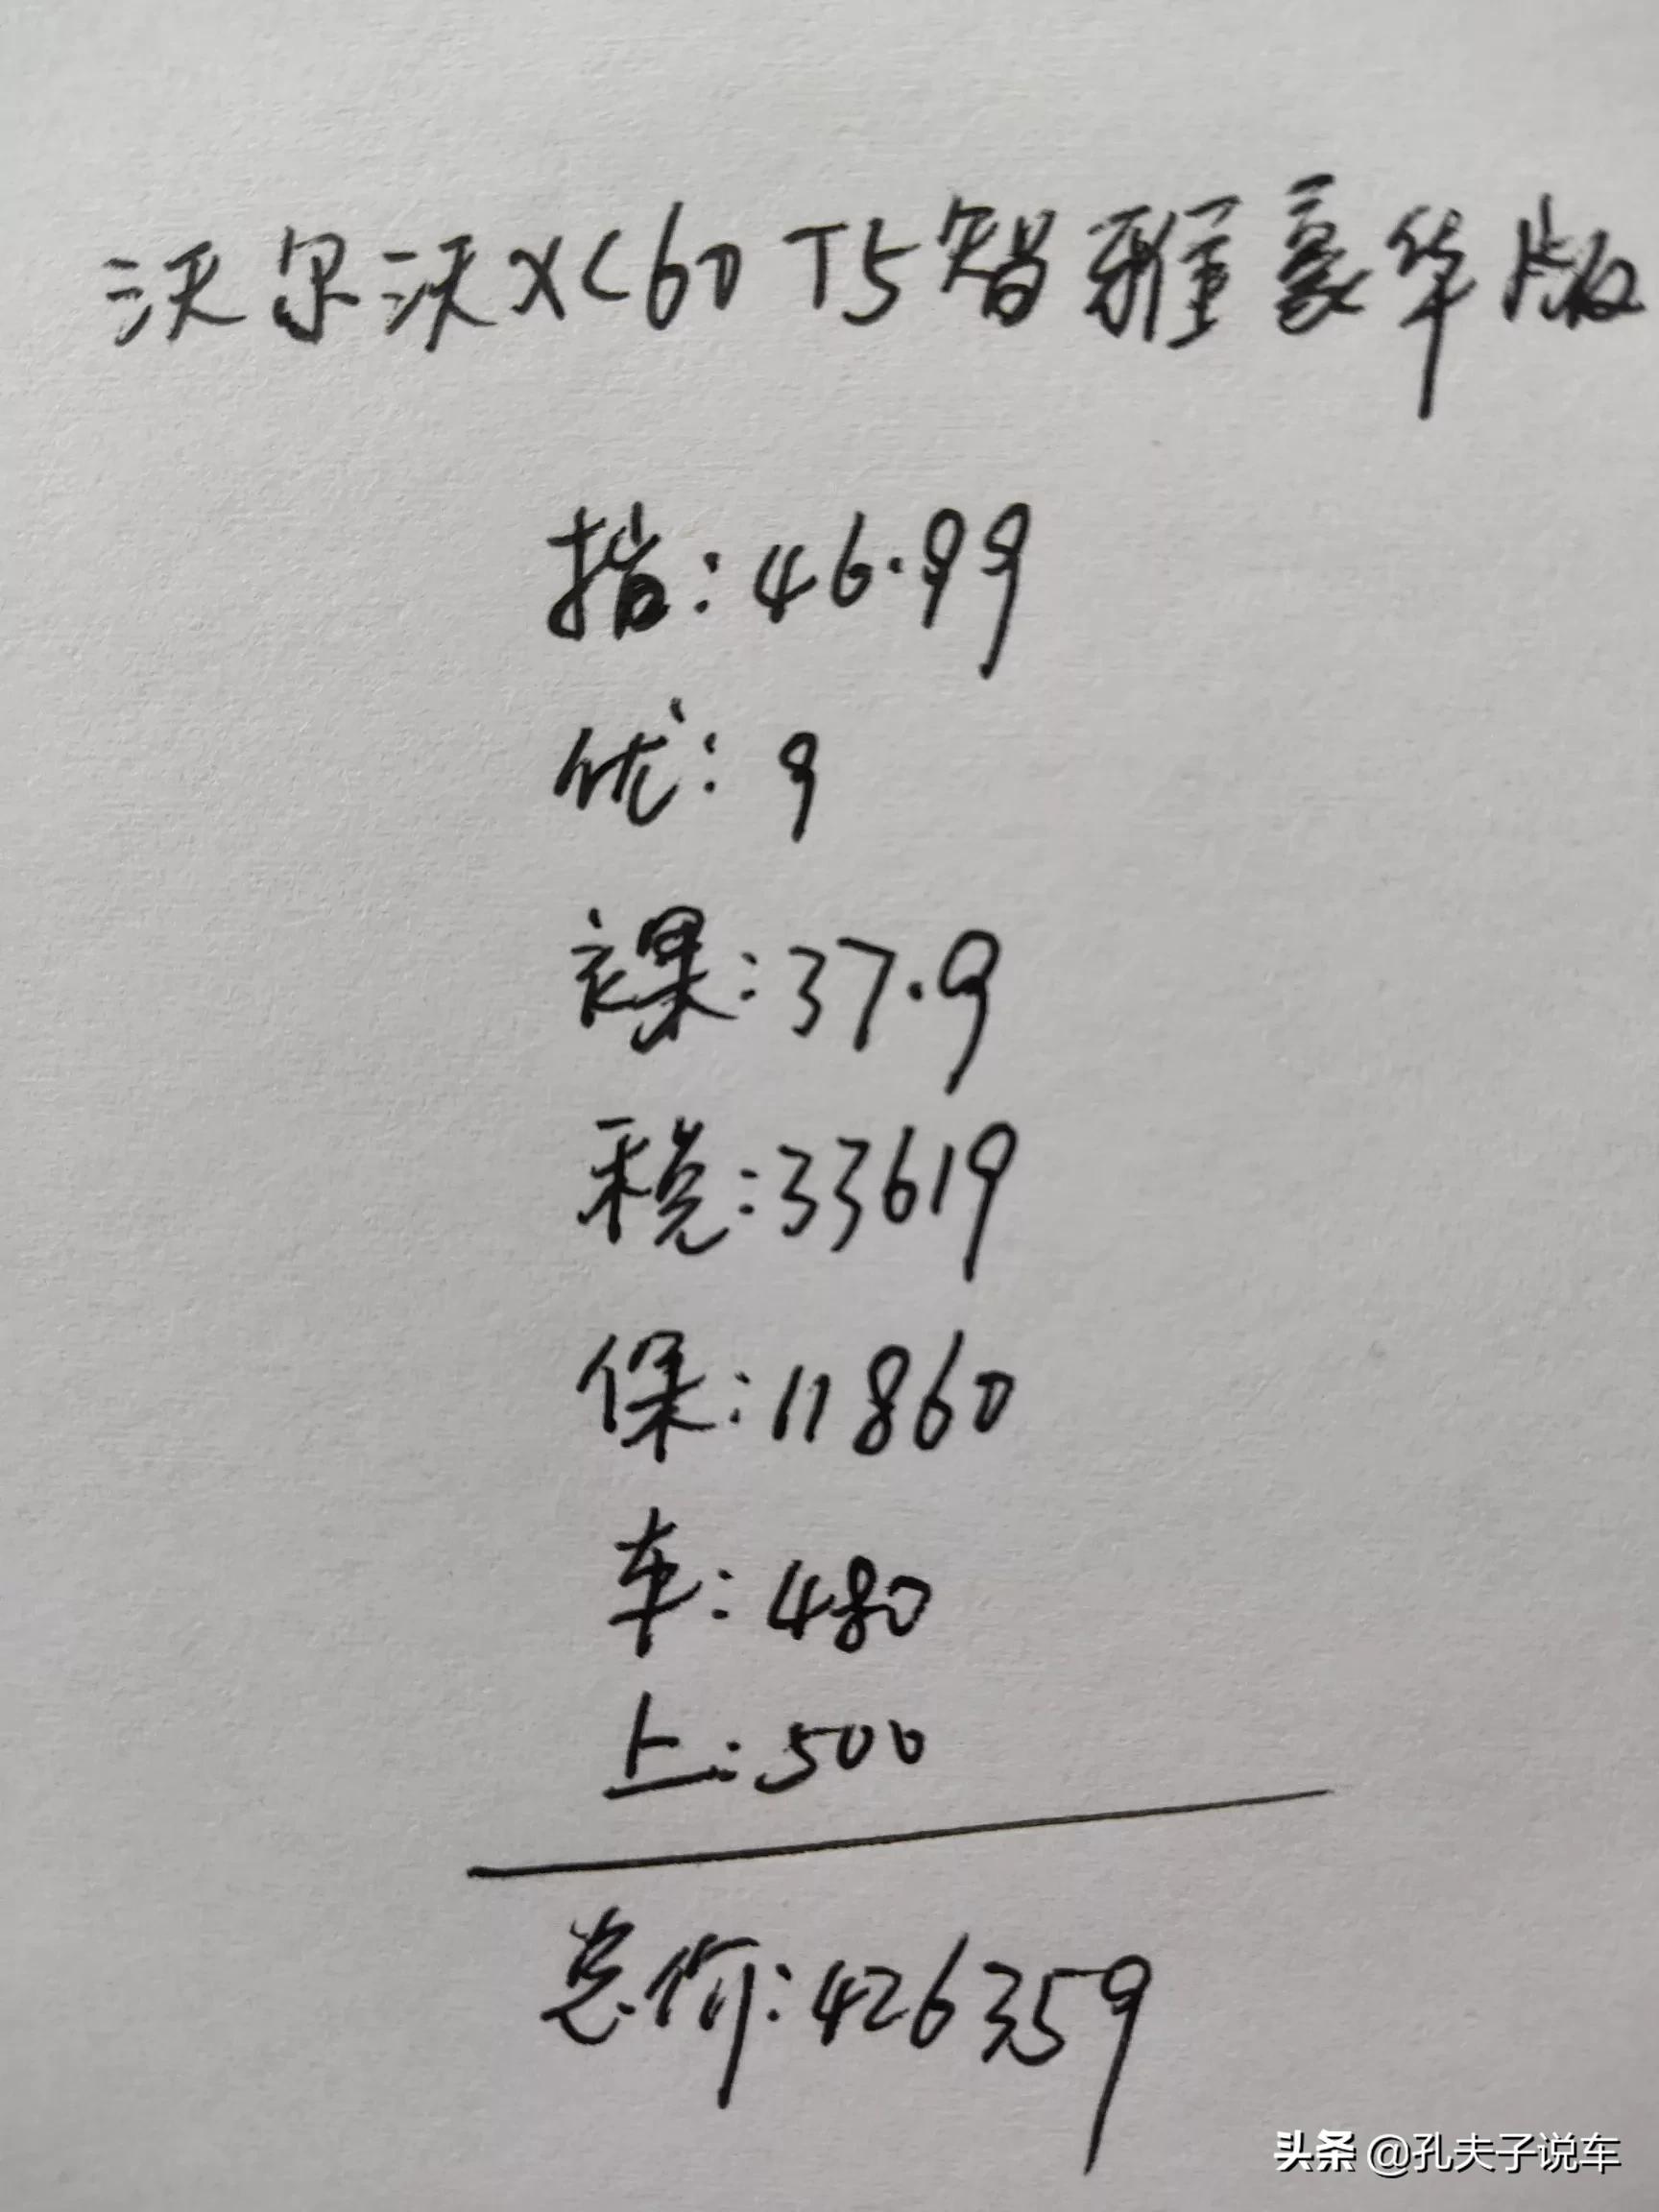 沃尔沃XC60 T5智雅豪华版
指:46.99
优:9
裸:37.9
税:33619
保:11860
车:480
上:500
总价:426359
头条 @孔夫子说车